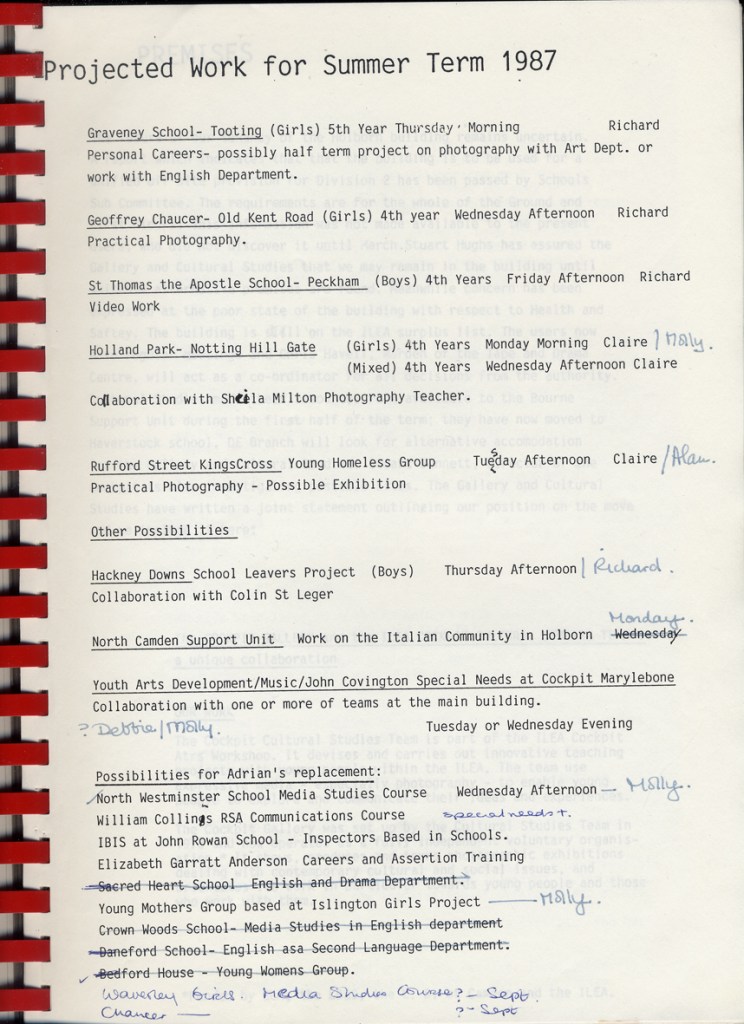 Projected Work for Summer Term 1987
Graveney School- Tooting (Girls) 5th Year Thursday Morning Richard
Personal Careers- possibly half term project on photography with Art Dept. or
work with English Department.
Geoffrey Chaucer- Old Kent Road (Girls) 4th year Wednesday Afternoon Richard
Practical Photography.
St Thomas the Apostle School- Peckham (Boys) 4th Years Friday Afternoon Richard
Video Work
Holland Park- Notting Hill Gate (Girls) 4th Years Monday Morning Claire / Molly.
(Mixed) 4th Years Wednesday Afternoon Claire
Collaboration with Sheila Milton Photography Teacher.
Rufford Street KingsCross Young Homeless Group Tuesday Afternoon Claire / Alan.
Practical Photography - Possible Exhibition
Other Possibilities
Hackney Downs School Leavers Project (Boys) Thursday Afternoon / Richard.
Collaboration with Colin St Leger
Monday.
North Camden Support Unit Work on the Italian Community in Holborn Wednesday
Youth Arts Development/Music/John Covington Special Needs at Cockpit Marylebone
Collaboration with one or more of teams at the main building.
? Debbie/Molly. Tuesday or Wednesday Evening
Possibilities for Adrian's replacement:
North Westminster School Media Studies Course Wednesday Afternoon — Molly.
William Collins RSA Communications Course special needs +.
IBIS at John Rowan School - Inspectors Based in Schools.
Elizabeth Garratt Anderson Careers and Assertion Training
Sacred Heart School English and Drama Department.
Young Mothers Group based at Islington Girls Project — Molly.
Crown Woods School- Media Studies in English department
Daneford School- English asa Second Language Department.
Bedford House - Young Womens Group.
Waverley Girls. Media Studies Course? - Sept.
Chaucer — ? - Sept